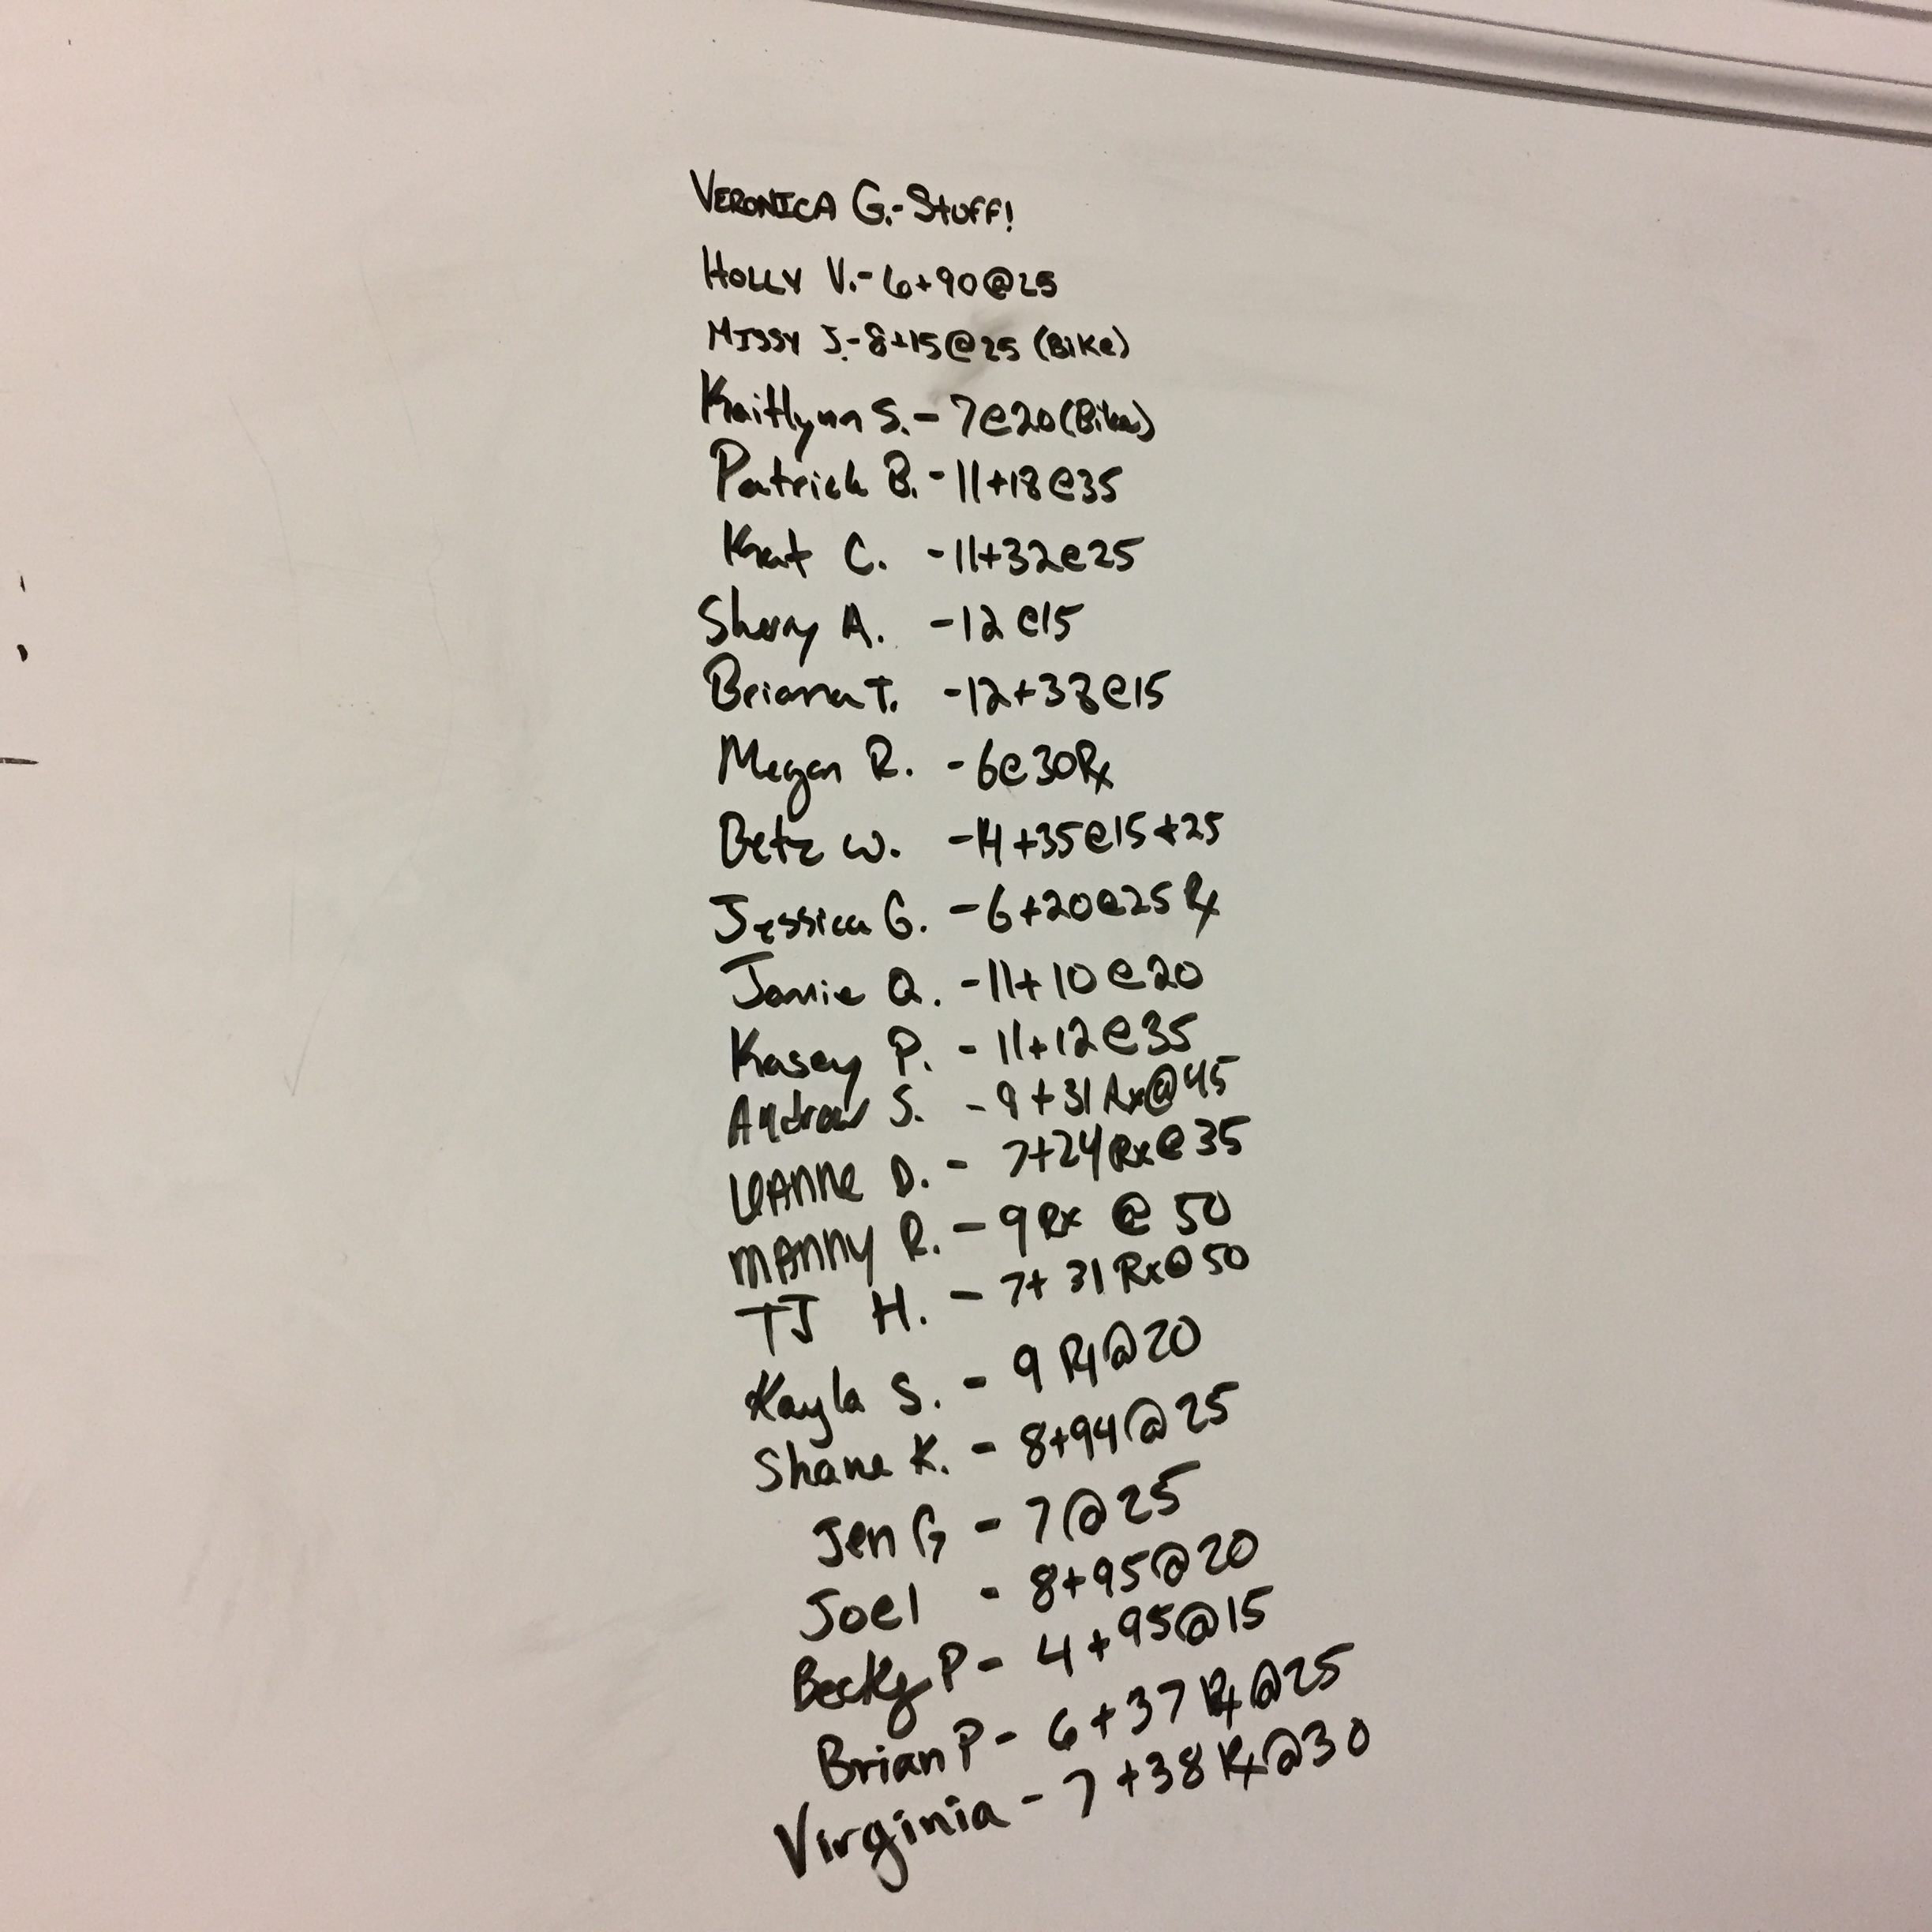 VERONICA G.-STUFF!
HOLLY V.-6+90@25
MISSY J.-8+15@25 (Bike)
Kaitlynn S.-7@20(Bike)
Patrick B.-11+18@35
Kat C. -11+32@25
Sherry A. -12@15
Briana T. -12+38@15
Megan R. -6@30Rx
Betz W. -14+35@15+25
Jessica G. -6+20@25 Rx
Jamie Q. -11+10@20
Kasey P. -11+12@35
Andrew S. -9+31 Rx@45
LeANNe D. - 7+24 Rx@35
MANNY R. - 9 Rx @ 50
TJ H. - 7+31 Rx@50
Kayla S. - 9 Rx@20
Shane K. - 8+94@25
Jen G - 7@25
Joel - 8+95@20
Becky P - 4+95@15
Brian P - 6+37 Rx@25
Virginia - 7+38 Rx@30